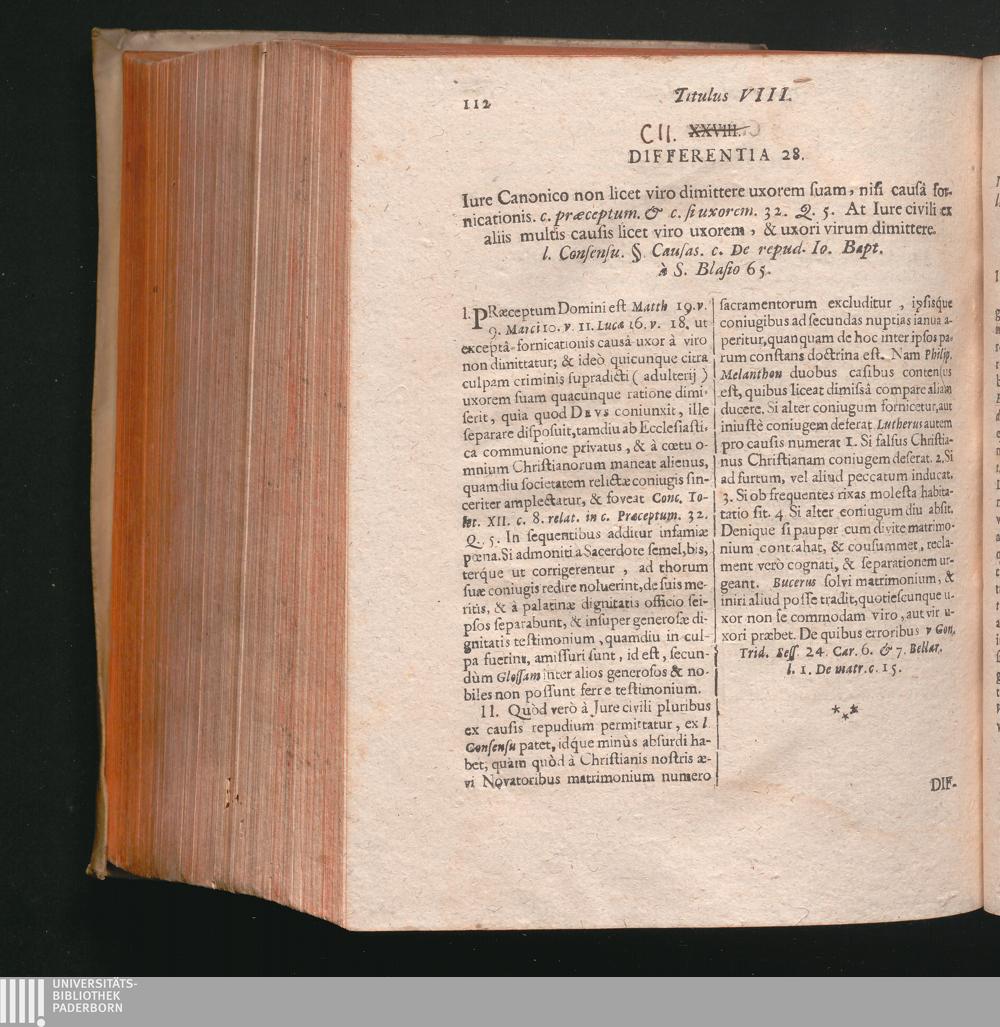 112
Titulus VIII.
CII. XXVIII.
DIFFERENTIA 28.
Iure Canonico non licet viro dimittere uxorem ſuam, niſi cauſâ for-
nicationis. c. præceptum. & c. ſi uxorem. 32. Q. 5. At Iure civili ex
aliis multis cauſis licet viro uxorem, & uxori virum dimittere.
l. Conſenſu. § Cauſas. c. De repud. Io. Bapt.
à S. Blaſio 65.
I. PRæceptum Domini eſt Matth 19. v.
9. Marci 10. v. 11. Lucæ 16. v. 18, ut
exceptâ fornicationis causâ uxor à viro
non dimittatur; & ideò quicunque citra
culpam criminis ſupradicti ( adulterij )
uxorem ſuam quacunque ratione dimi-
ſerit, quia quod DEVS coniunxit, ille
ſeparare diſpoſuit, tamdiu ab Eccleſiaſti-
ca communione privatus, & à cœtu o-
mnium Chriſtianorum maneat alienus,
quamdiu ſocietatem relictæ coniugis ſin-
ceriter amplectatur, & foveat Conc. To-
let. XII. c. 8. relat. in c. Præceptum. 32.
Q. 5. In ſequentibus additur infamiæ
pœna. Si admoniti a Sacerdote ſemel, bis,
terque ut corrigerentur, ad thorum
ſuæ coniugis redire noluerint, de ſuis me-
ritis, & à palatinæ dignitatis officio ſei-
pſos ſeparabunt, & inſuper generoſæ di-
gnitatis teſtimonium, quamdiu in cul-
pa fuerint, amiſſuri ſunt, id eſt, ſecun-
dùm Gloſſam inter alios generoſos & no-
biles non poſſunt ferre teſtimonium.
II. Quòd verò à Jure civili pluribus
ex cauſis repudium permittatur, ex l
Conſenſu patet, idque minùs abſurdi ha-
bet, quàm quòd à Chriſtianis noſtris æ-
vi Novatoribus matrimonium numero
ſacramentorum excluditur, ipſisque
coniugibus ad ſecundas nuptias ianua a-
peritur, quanquam de hoc inter ipſos pa-
rum conſtans doctrina eſt. Nam Philip.
Melanthon duobus caſibus contentus
eſt, quibus liceat dimiſsâ compare aliam
ducere. Si alter coniugum fornicetur, aut
iniuſtè coniugem deſerat. Lutherus autem
pro cauſis numerat 1. Si falſus Chriſtia-
nus Chriſtianam coniugem deſerat. 2. Si
ad furtum, vel aliud peccatum inducat.
3. Si ob frequentes rixas moleſta habita-
tatio ſit. 4. Si alter coniugum diu abſit.
Denique ſi pauper cum divite matrimo-
nium contrahat, & conſummet, recla-
ment verò cognati, & ſeparationem ur-
geant. Bucerus ſolvi matrimonium, &
iniri aliud poſſe tradit, quotieſcunque u-
xor non ſe commodam viro, aut vir u-
xori præbet. De quibus erroribus v Con.
Trid. Seſſ. 24. Car. 6. & 7. Bellar.
l. 1. De matr. c. 15.
DIF-
UNIVERSITÄTS-
BIBLIOTHEK
PADERBORN